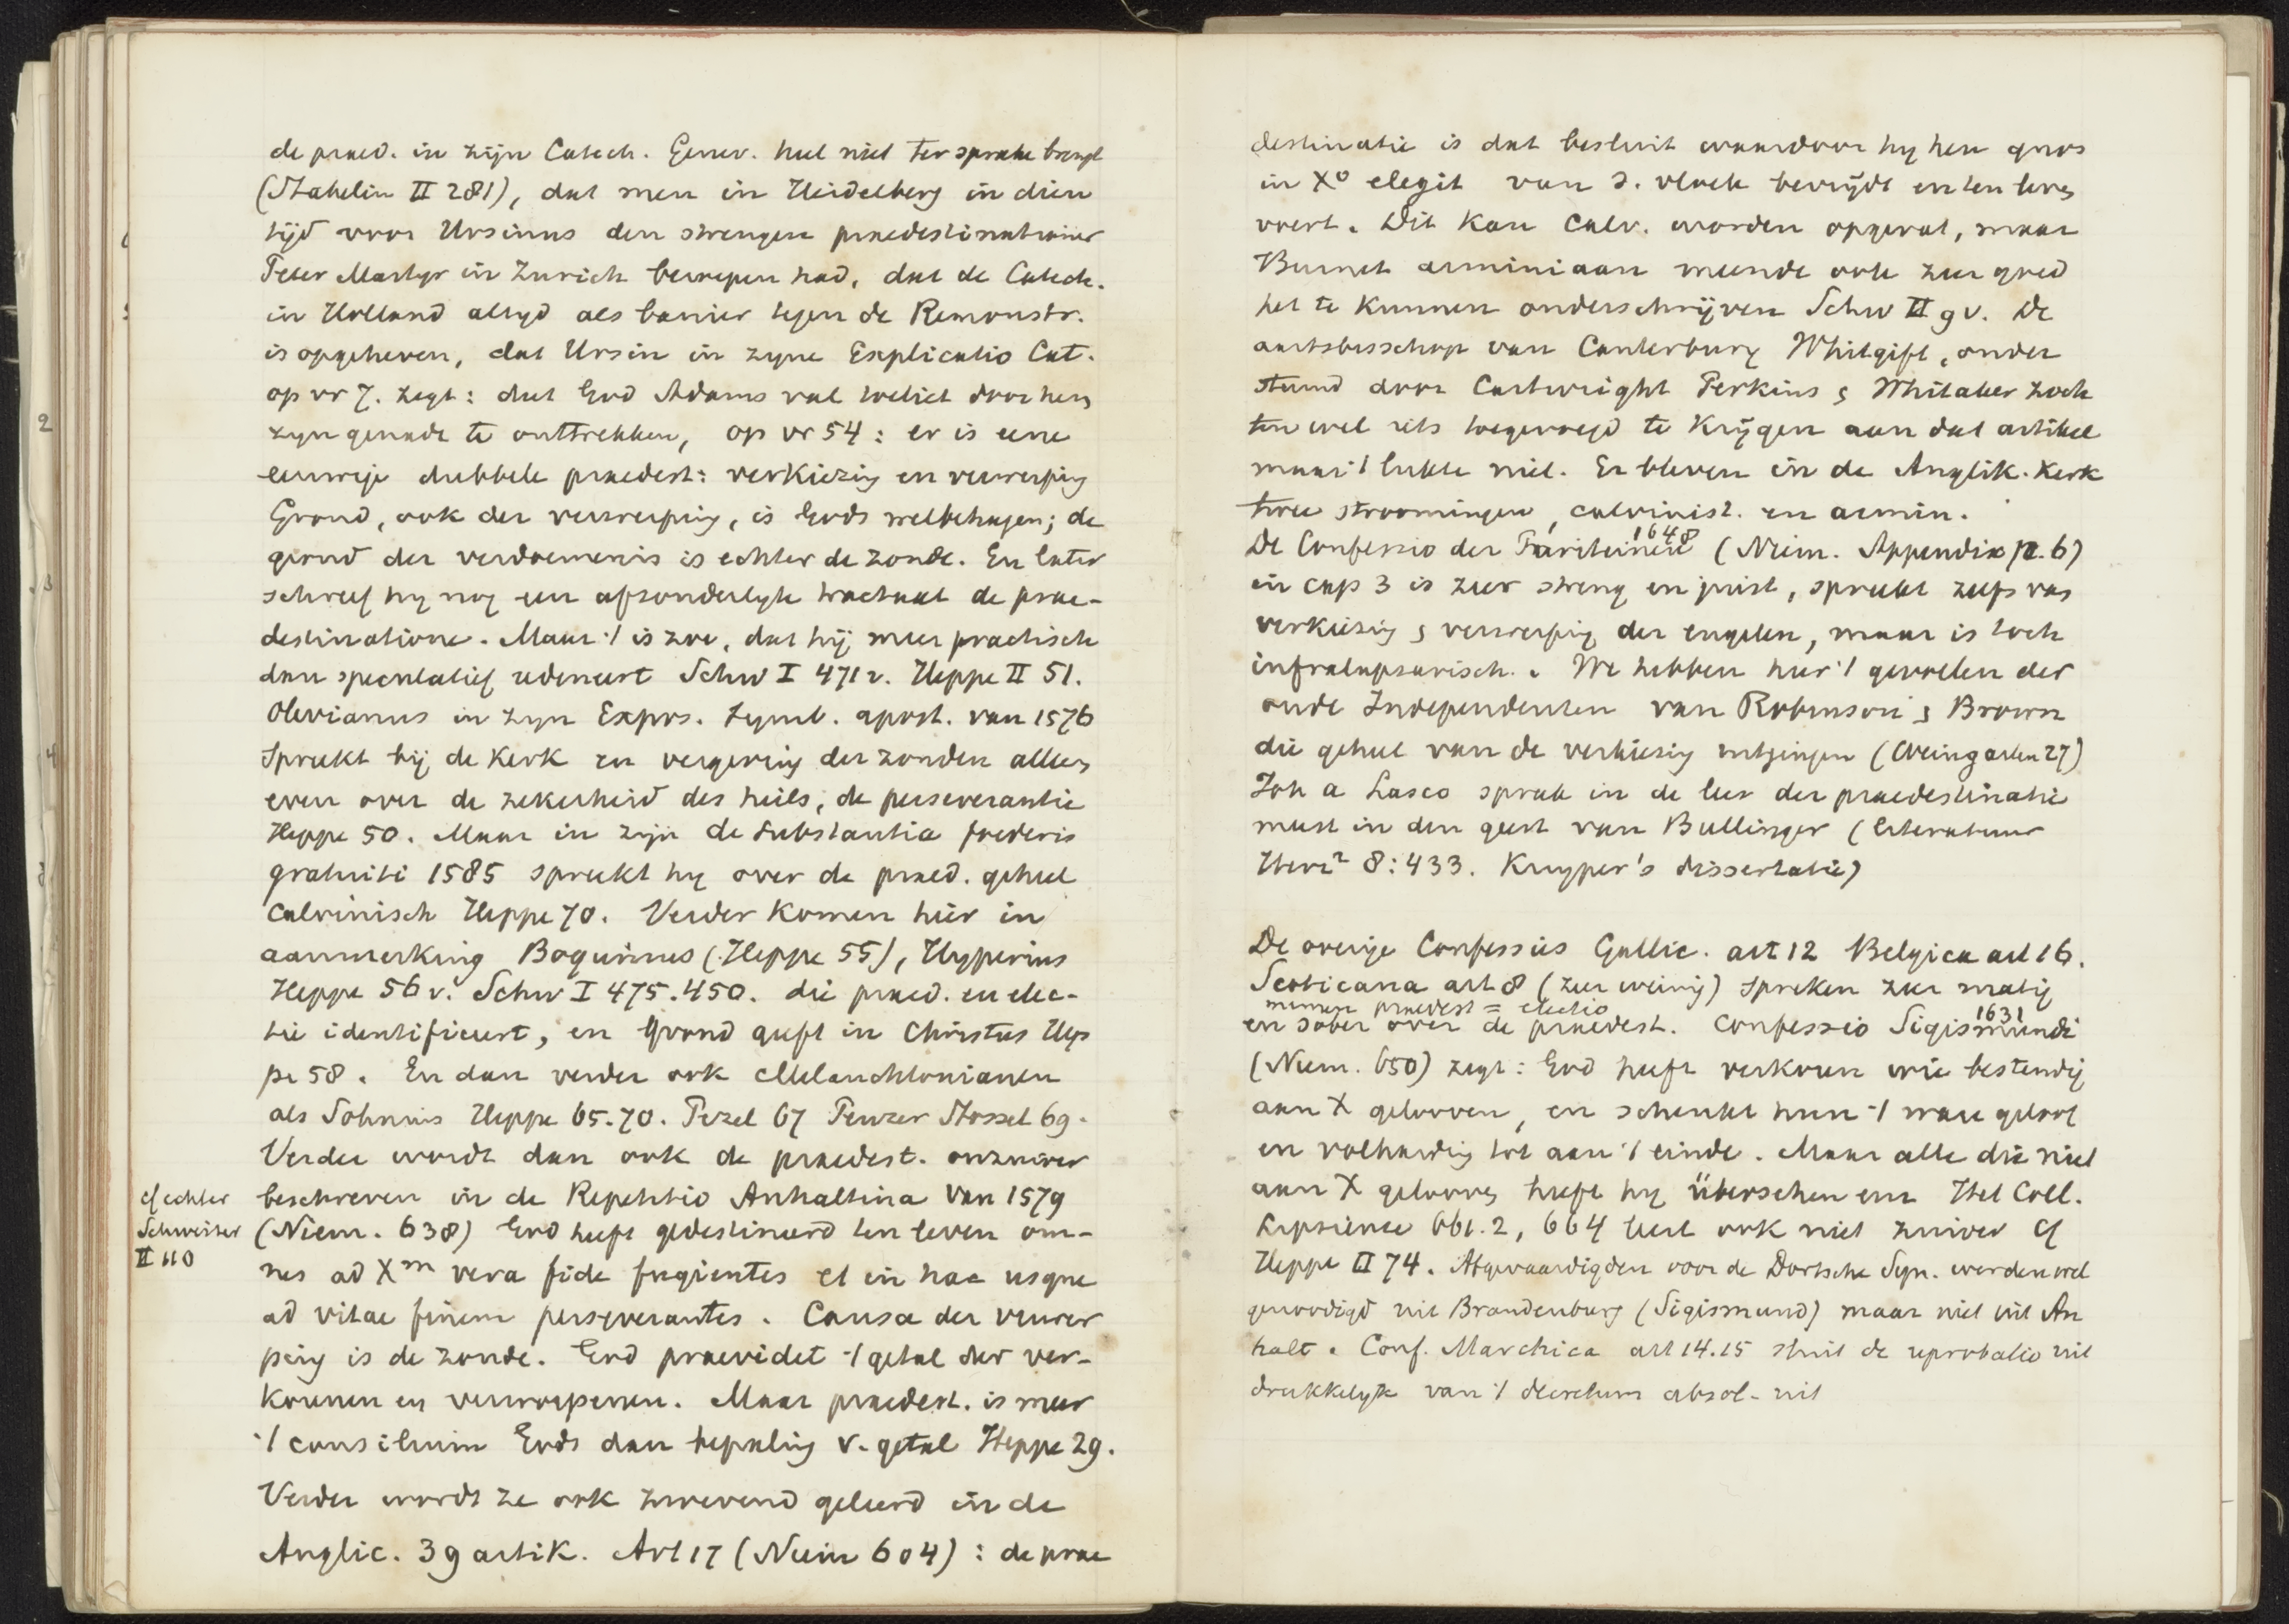 de praed. in zijn Catech. Genev. heel niet ter sprake brengt
(Stahelin II 281), dat men in Heidelberg in dien
tijd voor Ursinus den strengen praedestinatianer
Peter Martyr in Zurich beroepen had, dat de Catech.
in Holland altyd als banier tegen de Remonstr.
is opgeheven, dat Ursin in zyne Explicatio Cat.
op vr 7. zegt: dat God Adams val toeliet door hem
zyn genade te onttrekken, op vr 54: er is eene
eeuwige dubbele praedest: verkiezing en verwerping
Grond, ook der verwerping, is Gods welbehagen; de
grond der verdoemenis is echter de zonde. En later
schreef hy nog een afzonderlyk tractaat de prae-
destinatione. Maar 't is zoo, dat hij meer practisch
dan speculatief redeneert Schw I 471 v. Heppe II 51.
Olevianus in zyn Expos. Symb. apost. van 1576
spreekt bij de Kerk en vergeving der zonden alleen
even over de zekerheid des heils, de perseverantie
Heppe 50. Maar in zijn de substantia foederis
gratuiti 1585 spreekt hy over de praed. geheel
calvinisch Heppe 70. Verder komen hier in
aanmerking Boquinus (Heppe 55), Hyperius
Heppe 56 v. Schw I 475.450. die praed. en elec-
tie identificeert, en grond geeft in Christus Hep
pe 58. En dan verder ook Melanchtonianen
als Sohnius Heppe 65.70. Pezel 67 Peucer Stossel 69.
Verder wordt dan ook de praedest. onzuiver
cf echter
Schweizer
II 110
beschreven in de Repetitio Anhaltina van 1579
(Niem. 638) God heeft gedestineerd ten leven om-
nes ad Xm vera fide fugientes et in hac usque
ad vitae finem perseverantes. Causa der verwer
ping is de zonde. God praevidet 't getal der ver-
korenen en verworpenen. Maar praedest. is meer
't consilium Gods dan bepaling v. getal Heppe 29.
Verder wordt ze ook zwevend geleerd in de
Anglic. 39 artik. Art 17 (Niem 604): de prae
destinatie is dat besluit waardoor hy hen quos
in Xo elegit van d. vloek bevrijdt en ten leven
voert. Dit kan Calv. worden opgevat, maar
Burnet arminiaan meende ook zeer goed
het te kunnen onderschrijven Schw II 9 v. De
aartsbisschop van Canterbury Whitgift, onder
steund door Cartwright Perkins & Whitaker zoch
ten wel iets toegevoegd te krijgen aan dat artikel
maar 't lukte niet. Er bleven in de Anglik. Kerk
twee stroomingen, calvinist. en armin.
1648
De Confessio der Puriteinen (Niem. Appendix p. 6)
in cap 3 is zeer streng en juist, spreekt zelfs van
verkiezing & verwerping der engelen, maar is toch
infralapsarisch. We hebben hier 't gevoelen der
oude Independenten van Robinson & Brown
die geheel van de verkiezing uitgingen (Weingarten 27)
Joh a Lasco sprak in de leer der praedestinatie
meest in den geest van Bullinger (literatuur
Herz2 8:433. Kuyper's dissertatie)
De overige Confessies Gallic. art 12 Belgica art 16.
Scoticana art 8 (zeer weinig) spreken zeer matig
nemen praedest = electio
1631
en sober over de praedest. Confessio Sigismundi
(Niem. 650) zegt: God heeft verkoren wie bestendig
aan X gelooven, en schenkt hun 't ware geloof
en volharding tot aan 't einde. Maar alle die niet
aan X gelooven heeft hy übersehen enz Het Coll.
Lipsiense 661.2, 664 leert ook niet zuiver cf
Heppe II 74. Afgevaardigden voor de Dortsche Syn. werden wel
genoodigd uit Brandenburg (Sigismund) maar niet uit An
halt. Conf. Marchica art 14.15 sluit de reprobatio uit
drukkelyk van 't decretum absol. uit